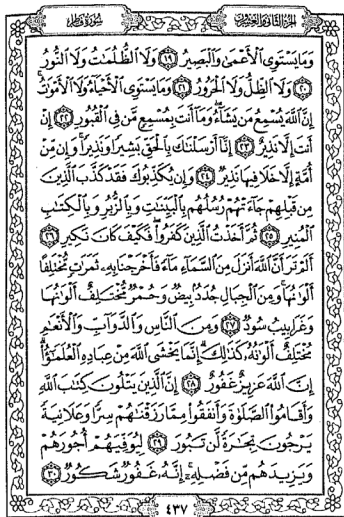 الجزء الثاني والعشرون سورة فاطر
وَمَا يَسْتَوِى الْأَعْمَىٰ وَالْبَصِيرُ ١٩ وَلَا الظُّلُمَٰتُ وَلَا النُّورُ
٢٠ وَلَا الظِّلُّ وَلَا الْحَرُورُ ٢١ وَمَا يَسْتَوِى الْأَحْيَاءُ وَلَا الْأَمْوَٰتُ
إِنَّ اللَّهَ يُسْمِعُ مَن يَشَاءُ وَمَا أَنتَ بِمُسْمِعٍ مَّن فِى الْقُبُورِ ٢٢ إِنْ
أَنتَ إِلَّا نَذِيرٌ ٢٣ إِنَّا أَرْسَلْنَٰكَ بِالْحَقِّ بَشِيرًا وَنَذِيرًا وَإِن مِّنْ
أُمَّةٍ إِلَّا خَلَا فِيهَا نَذِيرٌ ٢٤ وَإِن يُكَذِّبُوكَ فَقَدْ كَذَّبَ الَّذِينَ
مِن قَبْلِهِمْ جَاءَتْهُمْ رُسُلُهُم بِالْبَيِّنَٰتِ وَبِالزُّبُرِ وَبِالْكِتَٰبِ
الْمُنِيرِ ٢٥ ثُمَّ أَخَذْتُ الَّذِينَ كَفَرُوا فَكَيْفَ كَانَ نَكِيرِ ٢٦
أَلَمْ تَرَ أَنَّ اللَّهَ أَنزَلَ مِنَ السَّمَاءِ مَاءً فَأَخْرَجْنَا بِهِ ثَمَرَٰتٍ مُّخْتَلِفًا
أَلْوَٰنُهَا وَمِنَ الْجِبَالِ جُدَدٌ بِيضٌ وَحُمْرٌ مُّخْتَلِفٌ أَلْوَٰنُهَا
وَغَرَابِيبُ سُودٌ ٢٧ وَمِنَ النَّاسِ وَالدَّوَابِّ وَالْأَنْعَٰمِ
مُخْتَلِفٌ أَلْوَٰنُهُ كَذَٰلِكَ إِنَّمَا يَخْشَى اللَّهَ مِنْ عِبَادِهِ الْعُلَمَٰؤُا
إِنَّ اللَّهَ عَزِيزٌ غَفُورٌ ٢٨ إِنَّ الَّذِينَ يَتْلُونَ كِتَٰبَ اللَّهِ
وَأَقَامُوا الصَّلَوٰةَ وَأَنفَقُوا مِمَّا رَزَقْنَٰهُمْ سِرًّا وَعَلَانِيَةً
يَرْجُونَ تِجَٰرَةً لَّن تَبُورَ ٢٩ لِيُوَفِّيَهُمْ أُجُورَهُمْ
وَيَزِيدَهُم مِّن فَضْلِهِ إِنَّهُ غَفُورٌ شَكُورٌ ٣٠
٤٣٧